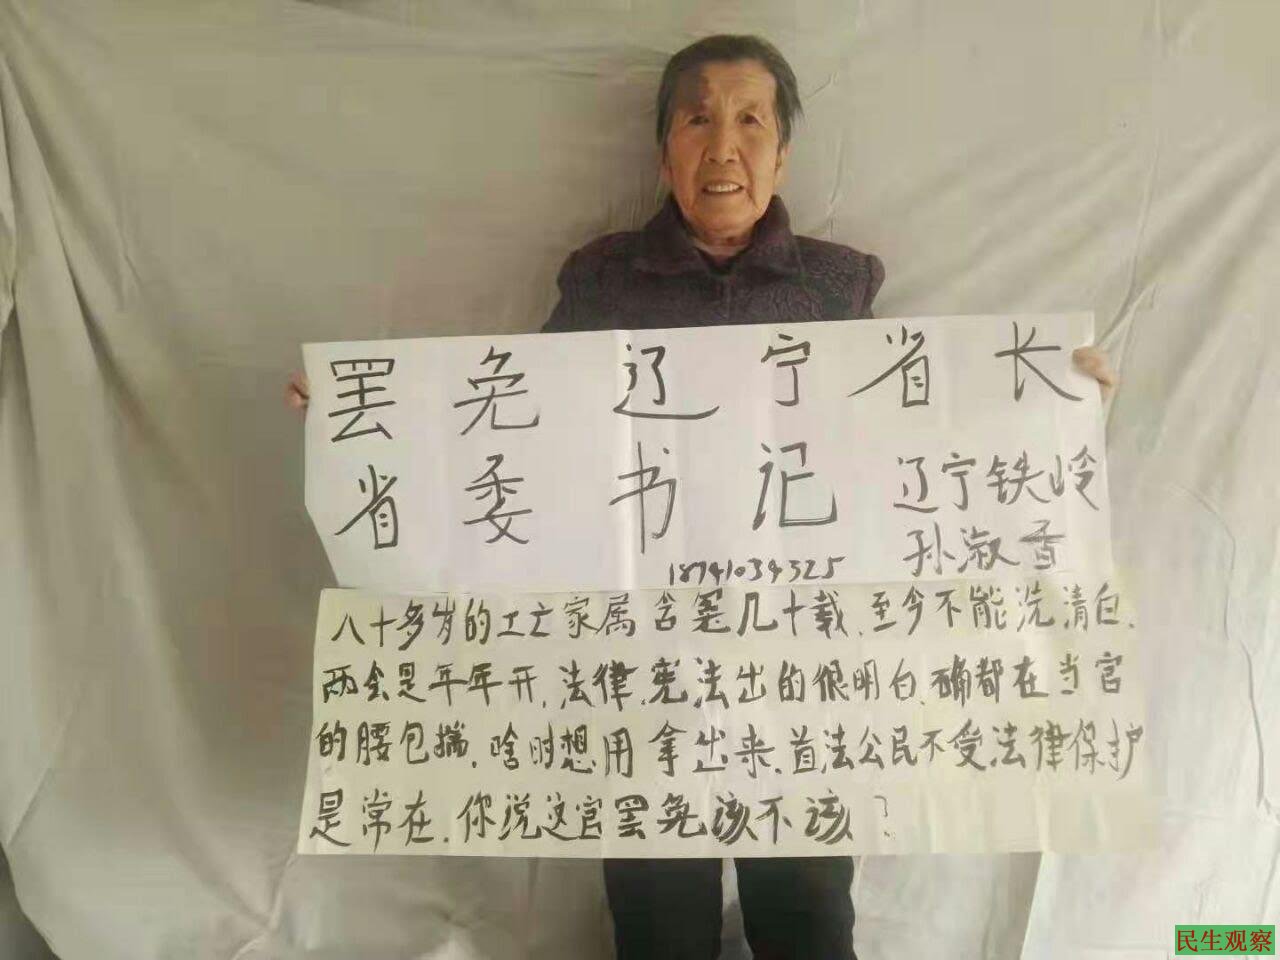 罢免辽宁省长
省委书记
辽宁铁岭
孙淑香
18741034325
八十多岁的工亡家属含冤几十载,至今不能洗清白,
两会是年年开,法律,宪法出的很明白,确都在当官
的腰包揣,啥时想用拿出来,首法公民不受法律保护
是常在,你说这官罢免该不该?
民生观察